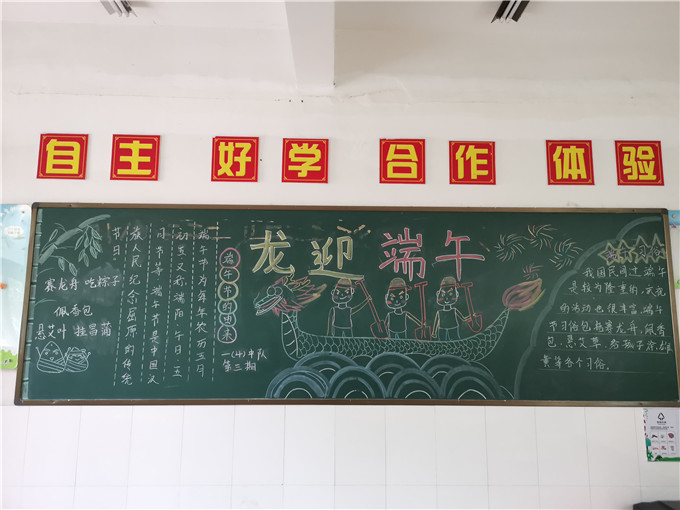 自主 好学 合作 体验
龙迎端午
赛龙舟 吃粽子
佩香包
悬艾叶 挂菖蒲
端午节的由来
端午节为每年农历五月
初五又称端阳 午日 五
月节等 端午节是中国汉
族人民纪念屈原的传统
节日
一(4)中队
第三期
我国民间过端午
是较为隆重的,庆祝
的活动也很丰富,端午
节习俗包括赛龙舟、佩香
包、悬艾草、给孩子涂雄
黄等各个习俗。